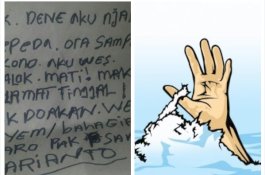 K. DENE AKU NJA
PEDA. ORA SAMP
KONO. AKU WES.
ALOK. MATI! MAK
LAMAT TINGJAL!
K DOAKAN. WE
YEM/ BAHAGIA
ARO PAK SA
ARIANTO